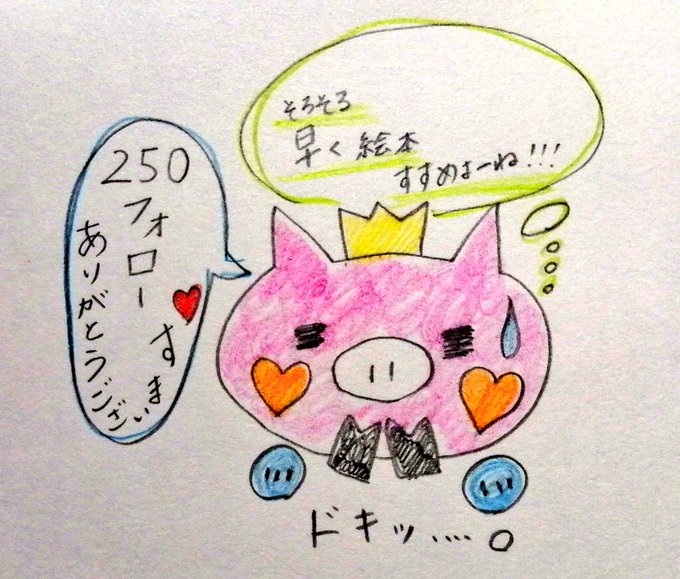 250
フォロー
ありがとうございます
そろそろ
早く絵本
すすめよーね!!!
ドキッ……。